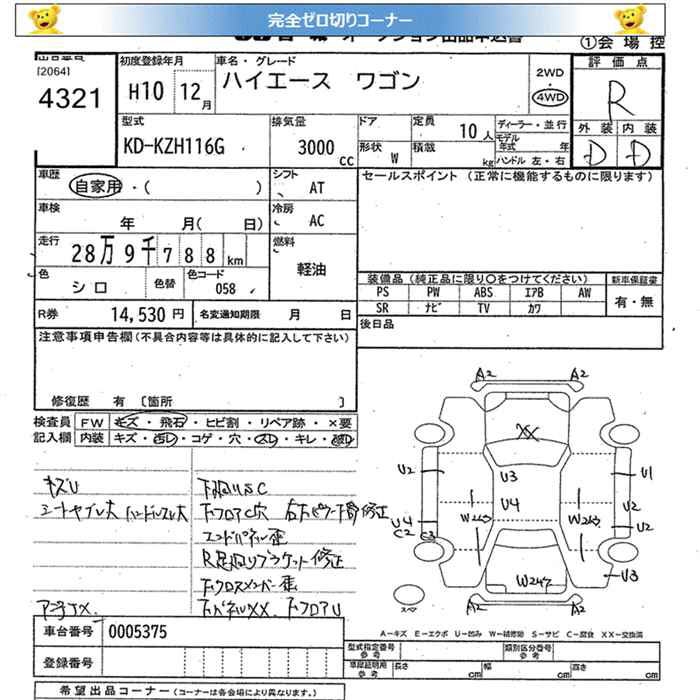 完全ゼロ切りコーナー
オークション出品申込書
①会場控
[2064]
4321
初度登録年月
H10 12月
車名・グレード
ハイエース ワゴン
2WD
・
4WD
評価点
R
外装 内装
D D
型式
KD-KZH116G
排気量
3000 CC
ドア
定員
10人
形状
W
積載
kg
ディーラー・並行
モデル年式 年
ハンドル 左・右
車歴
自家用・( )
シフト
AT
セールスポイント (正常に機能するものに限ります)
車検
年 月( 日)
冷房
AC
走行
28万9千788km
燃料
軽油
色
シロ
色替
色コード
058
装備品 (純正品に限り○をつけてください)
新車保証書
PS PW ABS エアB AW
有・無
SR ナビ TV カワ
R券
14,530円
名変通知期限 月 日
後日品
注意事項申告欄(不具合内容等は具体的に記入して下さい)
修復歴 有 [箇所 ]
検査員 FW キズ・飛石・ヒビ割・リペア跡・×要
記入欄 内装 キズ・汚レ・コゲ・穴・スレ・キレ・破レ
キズU
下回りSC
シートヤブレ大 ハンドルスレ大
下フロアC穴
修正
エンドパネル歪
修正
下クロスメンバー歪
下フロアU
A2 A2
XX
U3
U2 U1
U4
W2 W2
U2
U4 U2
C2 C3
W2 U3
A2 A2
スペ
A—キズ E—エクボ U—凹み W—補修跡 S—サビ C—腐食 XX—交換済
車台番号 0005375
登録番号
型式指定番号 参考
類別区分番号 参考
車庫証明用 参考
長さ cm
幅 cm
高さ cm
希望出品コーナー (コーナーは各会場により異なります。)